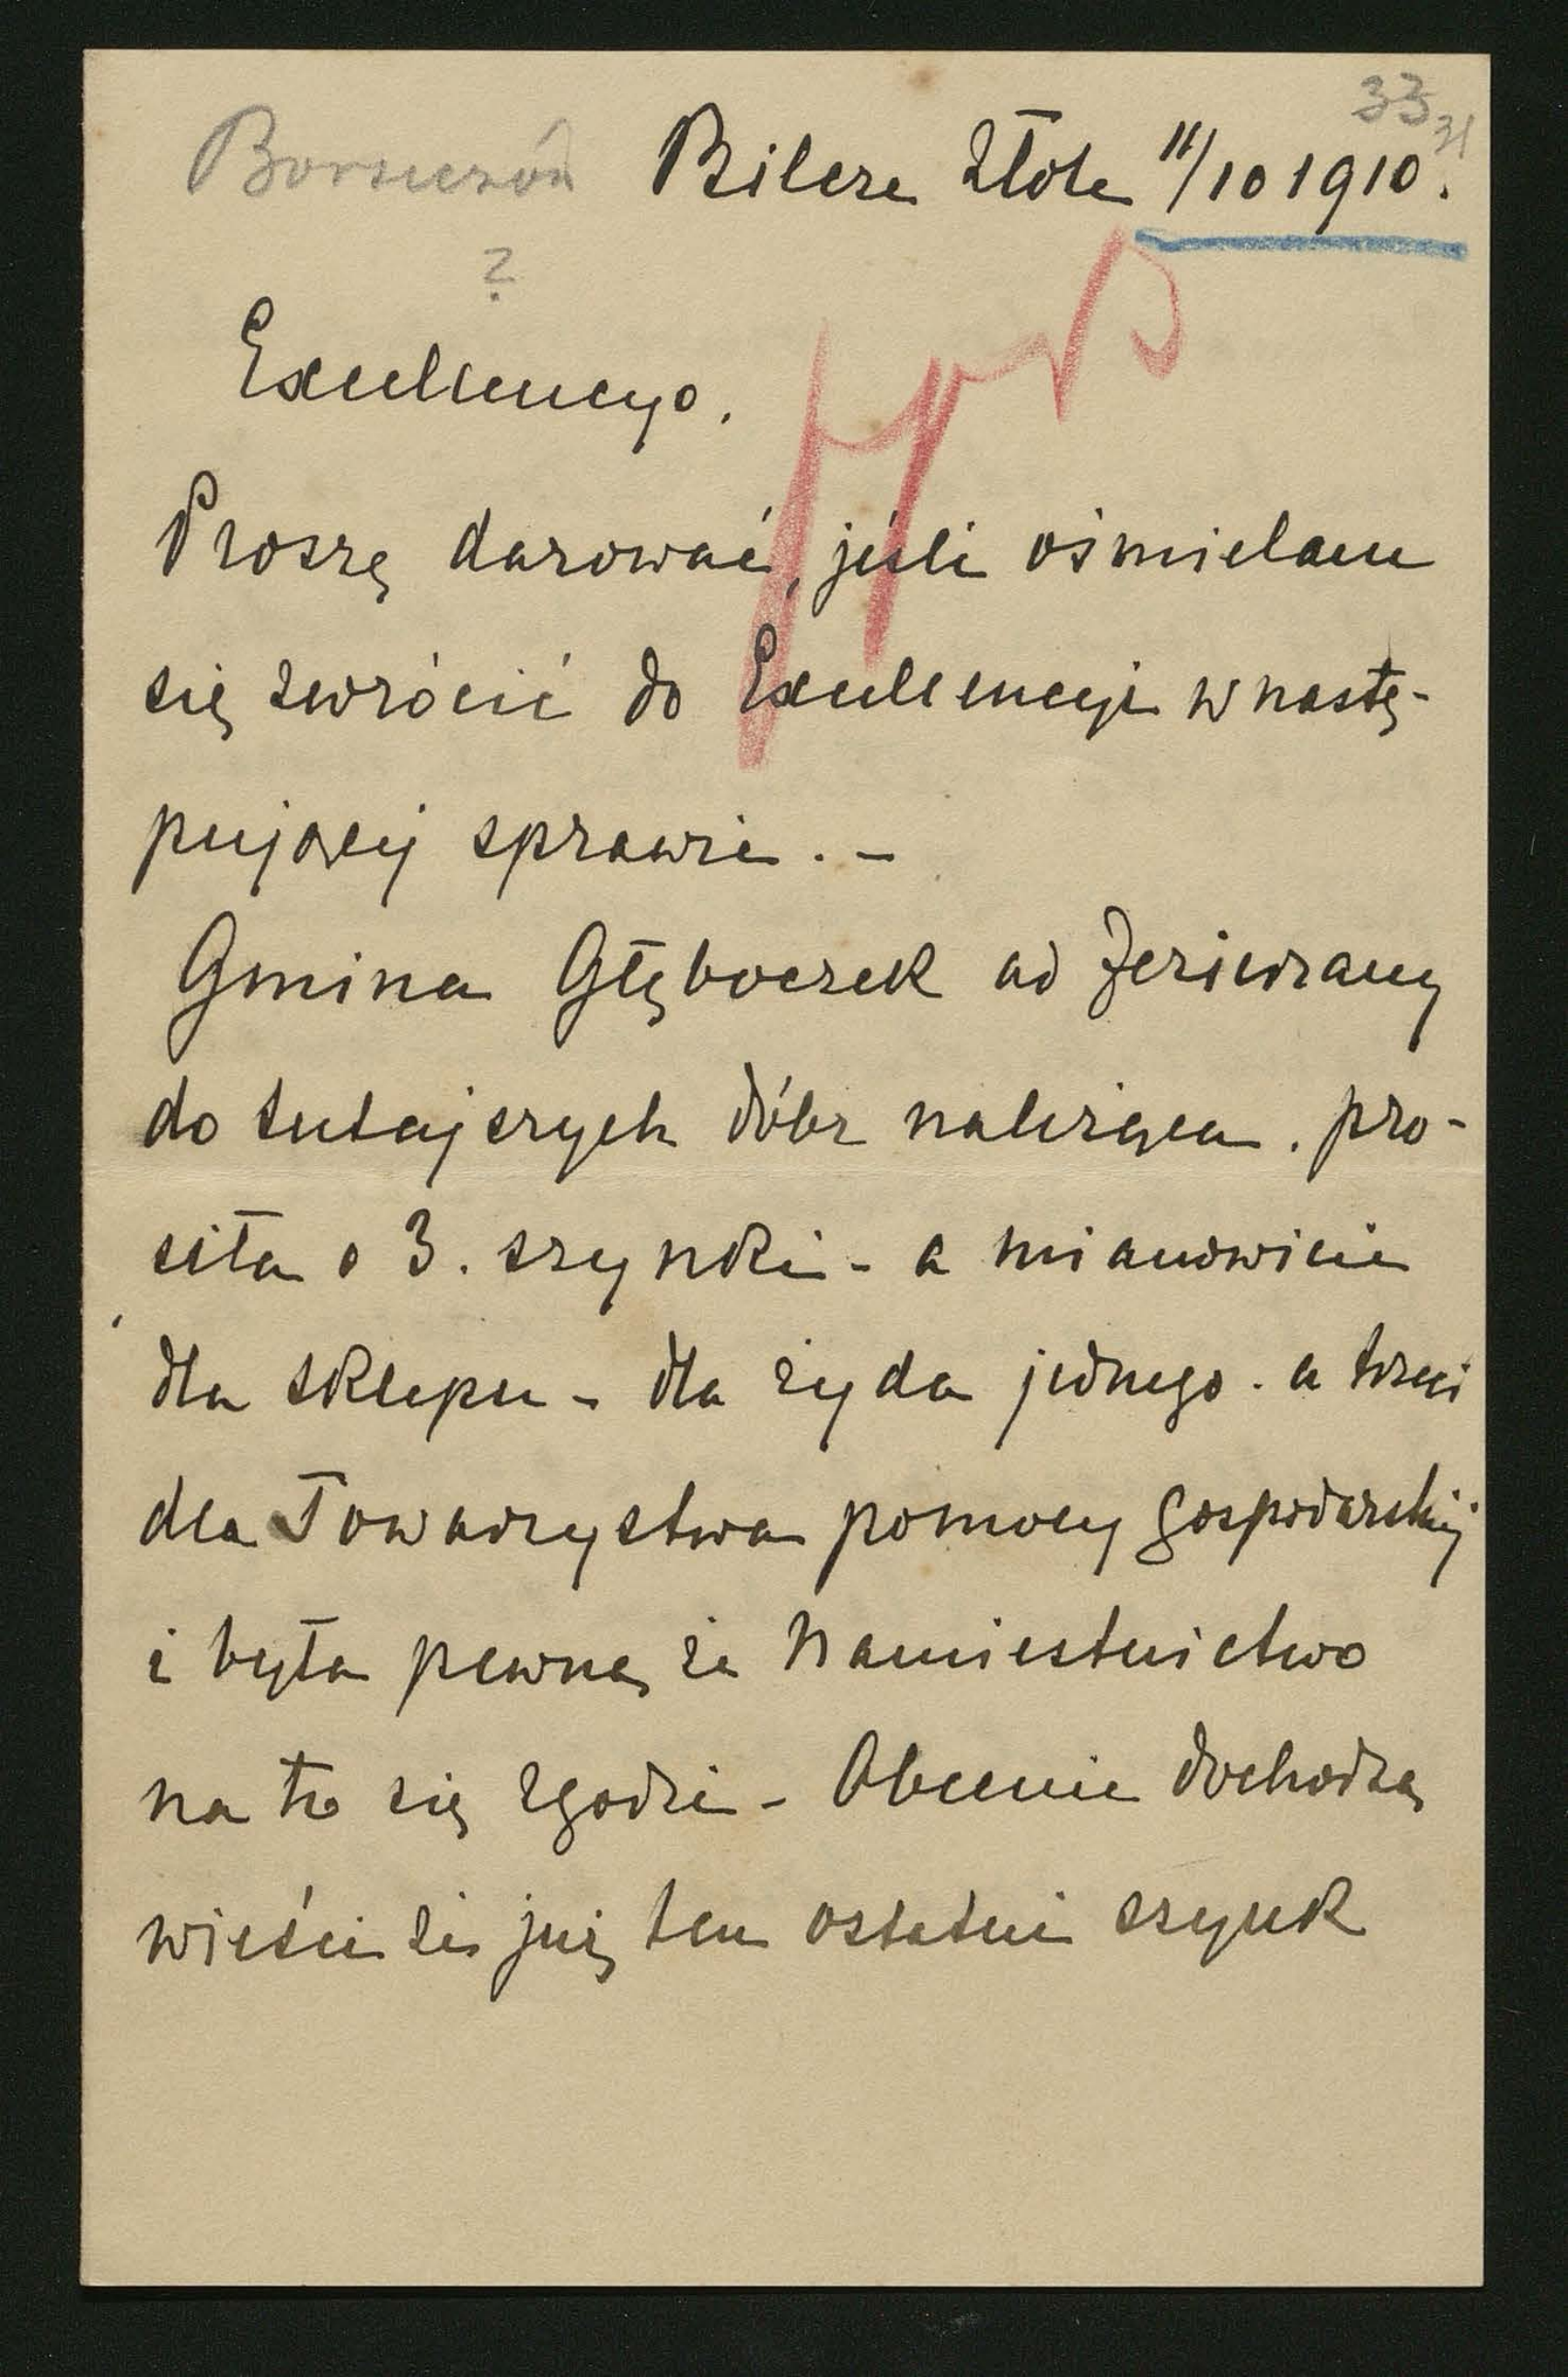 33 31
Borszczów Bilcze Złote 11/10 1910.
?
Excellencyo.
Proszę darować, jeśli ośmielam
się zwrócić do Excellencyi w nastę-
pującej sprawie. -
Gmina Głęboczek ad Jezierzany
do tutajszych dóbr należąca. pro-
siła o 3. szynki - a mianowicie
dla sklepu - dla żyda jednego. a trzeci
dla Towarzystwa pomocy gospodarskiej
i była pewną że Namiestnictwo
na to się zgodzi - Obecnie dochodzą
wieści że już ten ostatni szynk